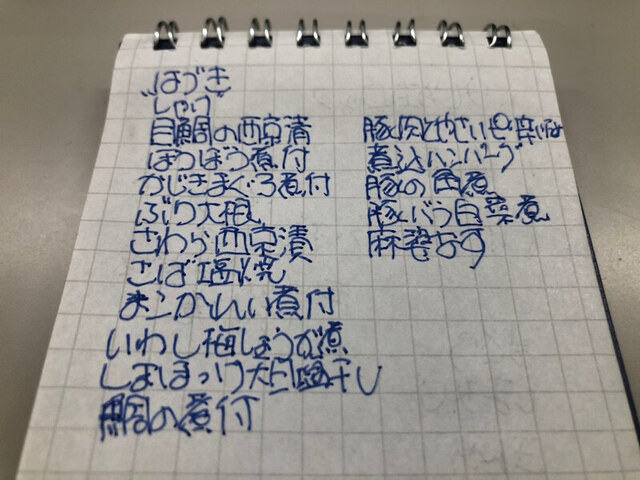 はづき
しゃけ
目鯛の西京漬
ほうぼう煮付
かじきまぐろ煮付
ぶり大根
さわら西京漬
さば塩焼
まこかれい煮付
いわし梅しょうが煮
しまほっけ大目塩干し
鯛の煮付
豚肉と
煮込ハンバーグ
豚の角煮
豚バラ白菜煮
麻婆なす